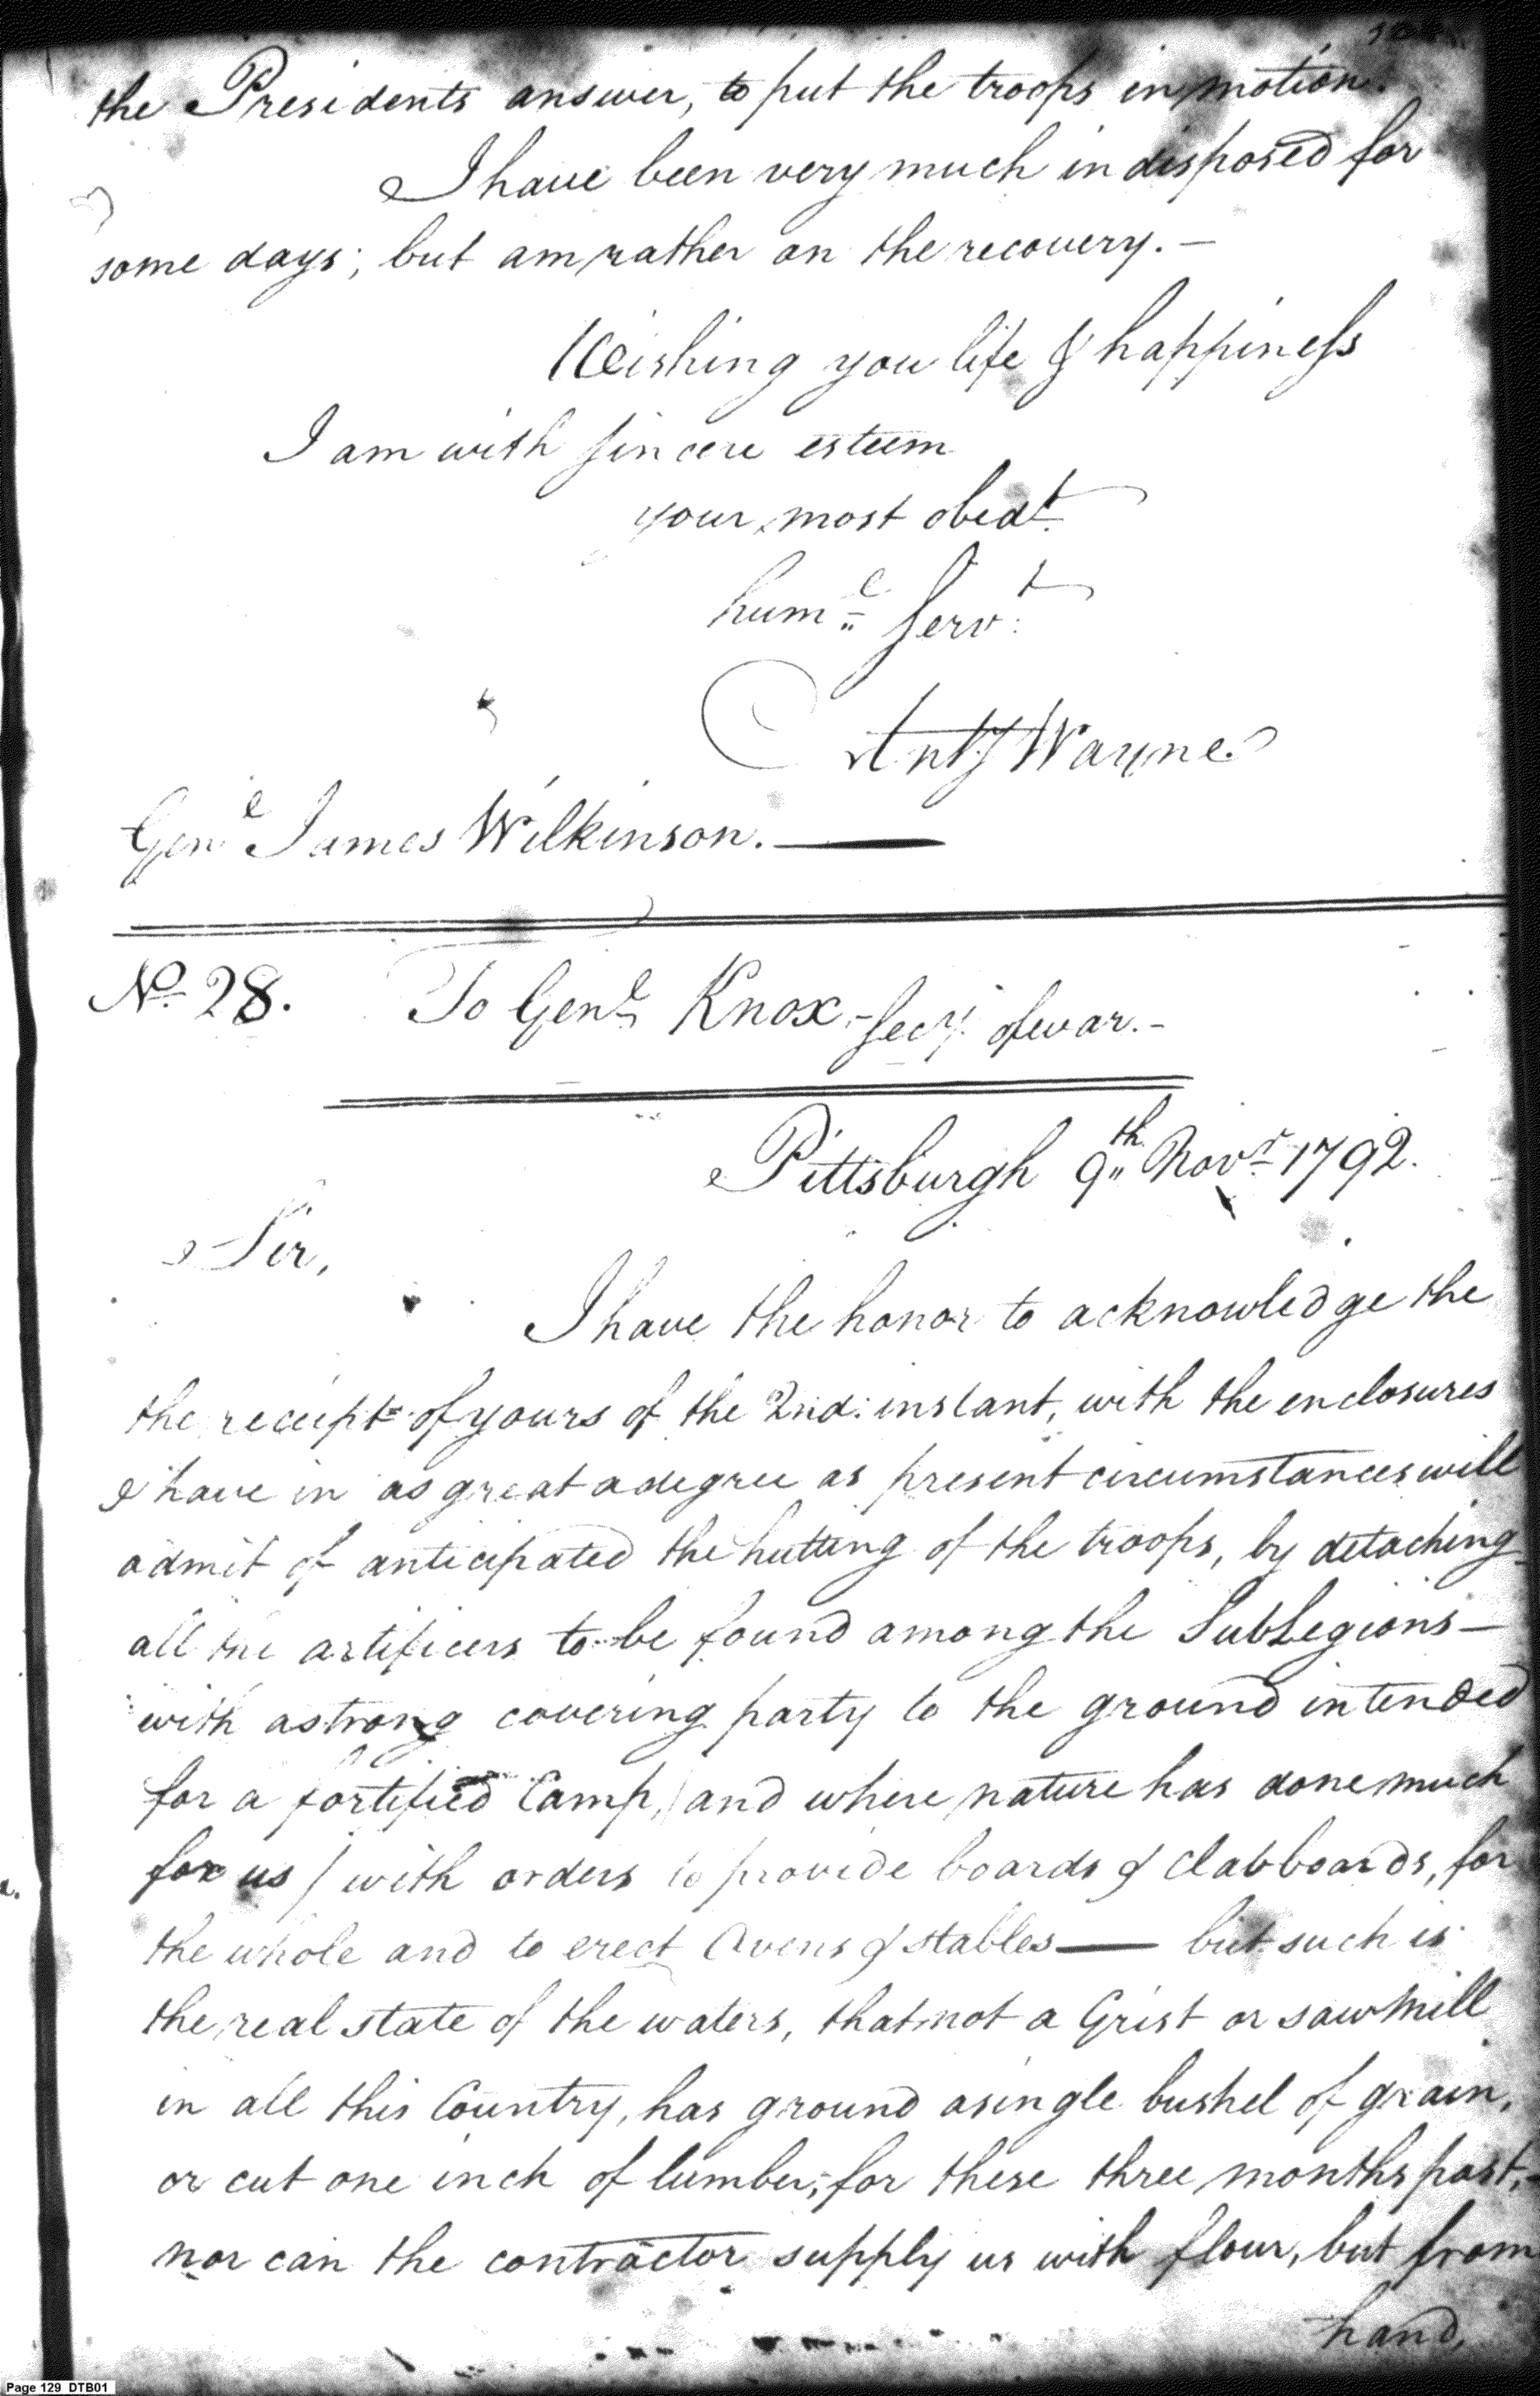 the Presidents answer, to put the troops in motion.
I have been very much indisposed for
some days; but am rather on the recovery. —
Wishing you life & happiness
I am with sincere esteem
your most obedt.
humle. Servt.
Anty Wayne
Genl. James Wilkinson. —
No. 28. To Genl. Knox, - Secy. of war. -
Pittsburgh 9th Novr. 1792.
Sir,
I have the honor to acknowledge the
the receipt of yours of the 2nd. instant, with the enclosures
I have in as great a degree as present circumstances will
admit of anticipated the hutting of the troops, by detaching
all the artificers to be found among the SubLegions —
with a strong covering party to the ground intended
for a fortified Camp, (and where nature has done much
for us) with orders to provide boards & clabboards, for
the whole and to erect Ovens & stables — but such is
the real state of the waters, that not a Grist or saw Mill
in all this Country, has ground a single bushel of grain,
or cut one inch of lumber, for these three months past,
nor can the contractor supply us with flour, but from
hand,
Page 129 DTB01